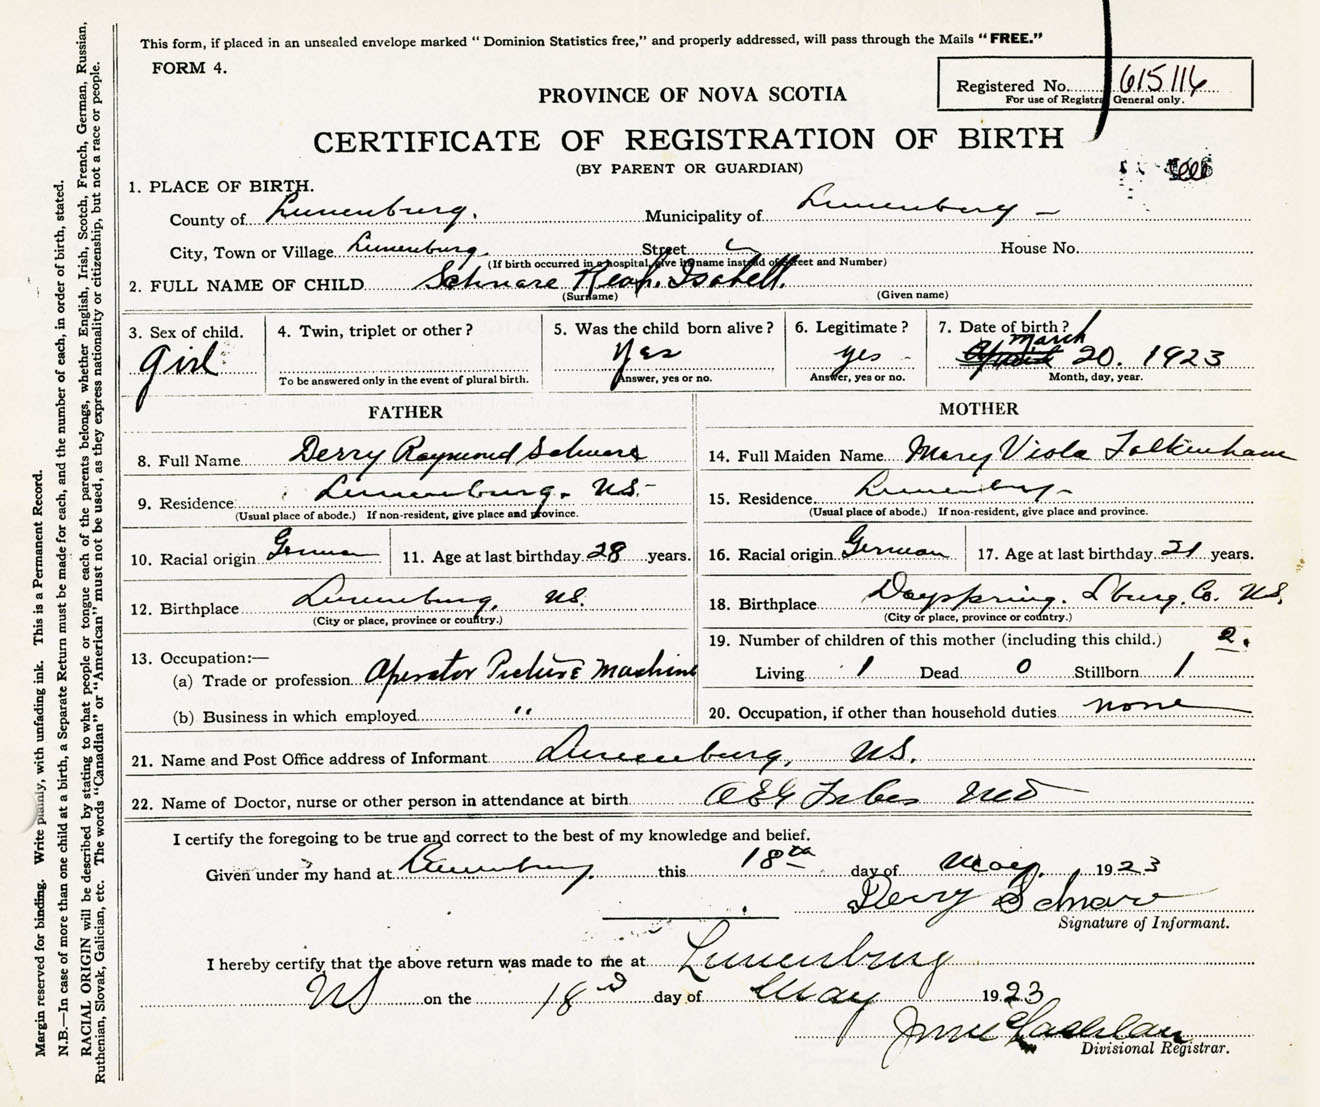 This form, if placed in an unsealed envelope marked “ Dominion Statistics free,” and properly addressed, will pass through the Mails “FREE.”
FORM 4.
Registered No. 615116
For use of Registrar General only.
PROVINCE OF NOVA SCOTIA
CERTIFICATE OF REGISTRATION OF BIRTH
(BY PARENT OR GUARDIAN)
1. PLACE OF BIRTH.
County of Lunenburg. Municipality of Lunenburg —
City, Town or Village Lunenburg. Street House No.
(If birth occurred in a hospital, give its name instead of Street and Number)
2. FULL NAME OF CHILD Schnare Isabell.
(Surname) (Given name)
3. Sex of child. 4. Twin, triplet or other? 5. Was the child born alive? 6. Legitimate? 7. Date of birth?
girl yes yes - March 20. 1923
To be answered only in the event of plural birth. Answer, yes or no. Answer, yes or no. Month, day, year.
FATHER MOTHER
8. Full Name Derry Raymond Schnare 14. Full Maiden Name Mary Viola Falkenham
9. Residence Lunenburg. NS. 15. Residence Lunenburg -
(Usual place of abode.) If non-resident, give place and province. (Usual place of abode.) If non-resident, give place and province.
10. Racial origin German 11. Age at last birthday 28 years. 16. Racial origin German 17. Age at last birthday 21 years.
12. Birthplace Lunenburg, NS. 18. Birthplace Dayspring. Lburg. Co. NS.
(City or place, province or country.) (City or place, province or country.)
13. Occupation:— 19. Number of children of this mother (including this child.) 2.
(a) Trade or profession Operator Picture Machine Living 1 Dead 0 Stillborn 1
(b) Business in which employed " 20. Occupation, if other than household duties none
21. Name and Post Office address of Informant Lunenburg, NS.
22. Name of Doctor, nurse or other person in attendance at birth MD
I certify the foregoing to be true and correct to the best of my knowledge and belief.
Given under my hand at Lunenburg. this 18th day of May. 1923
Derry Schnare
Signature of Informant.
I hereby certify that the above return was made to me at Lunenburg
NS on the 18 day of May 1923
Divisional Registrar.
Margin reserved for binding. Write plainly, with unfading ink. This is a Permanent Record.
N.B.—In case of more than one child at a birth, a Separate Return must be made for each, and the number of each, in order of birth, stated.
RACIAL ORIGIN will be described by stating to what people or tongue each of the parents belongs, whether English, Irish, Scotch, French, German, Russian,
Ruthenian, Slovak, Galician, etc. The words “Canadian” or “American” must not be used, as they express nationality or citizenship, but not a race or people.